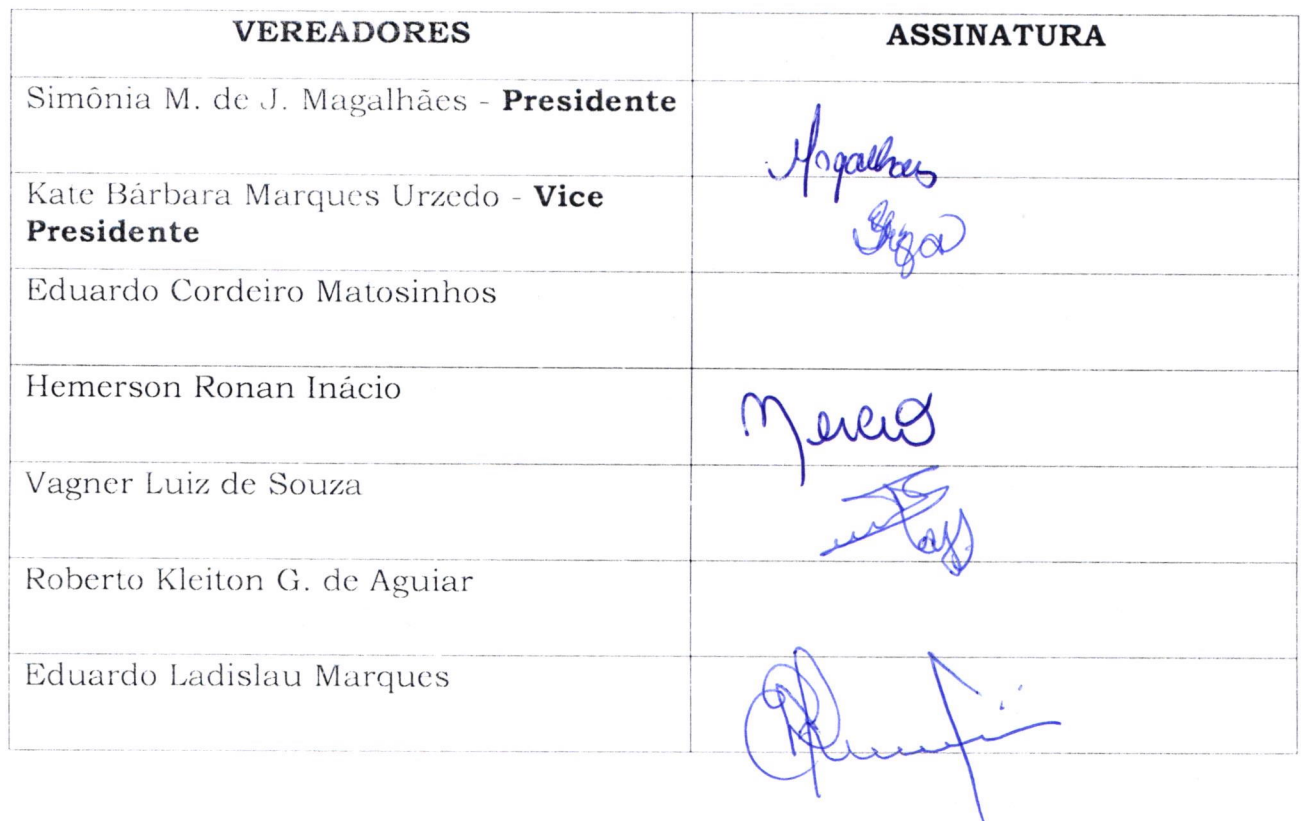 VEREADORES ASSINATURA
Simônia M. de J. Magalhães - Presidente
Magalhaes
Kate Bárbara Marques Urzedo - Vice
Presidente
Eduardo Cordeiro Matosinhos
Hemerson Ronan Inácio
Vagner Luiz de Souza
Roberto Kleiton G. de Aguiar
Eduardo Ladislau Marques